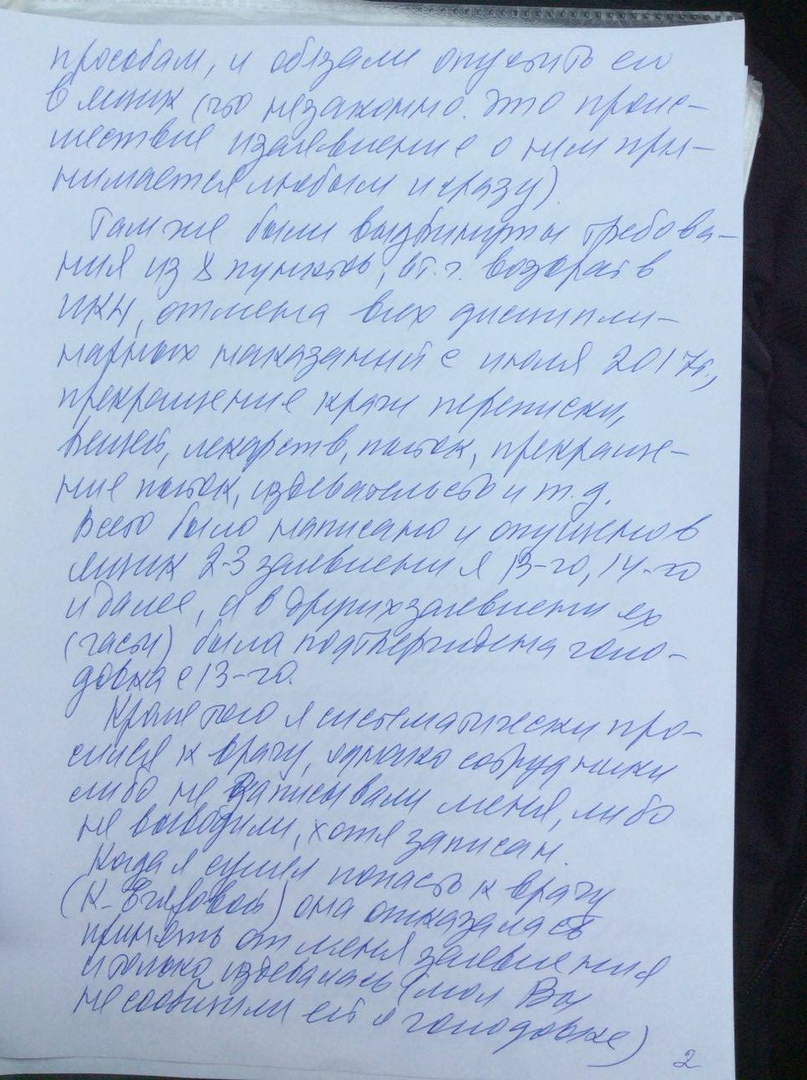 просбам, и обязали опустить его
в ящик (что незаконно. Это проис-
шествие и заявление о нем при-
нимается любым и сразу).
Там же были выдвинуты требова-
ния из 8 пунктов, в т.ч. возврат в
отмена всех дисципли-
нарных наказаний с июля 2017г.,
прекращение кражи переписки,
вещей, лекарств, пыток, прекраще-
ние пыток, издевательств и т.д.
Всего было написано и опущено в
ящик 2-3 заявления 13-го, 14-го
и далее, а в других заявлениях
(часы) была подтверждена голо-
довка с 13-го.
Кроме того я систематически про-
сился к врачу, однако сотрудники
либо не записывали меня, либо
не выводили, хотя записан.
Когда я сумел попасть к врачу
она отказалась
принять от меня заявления
и только издевалась (мол Вы
не сообщили ей о голодовке)
2